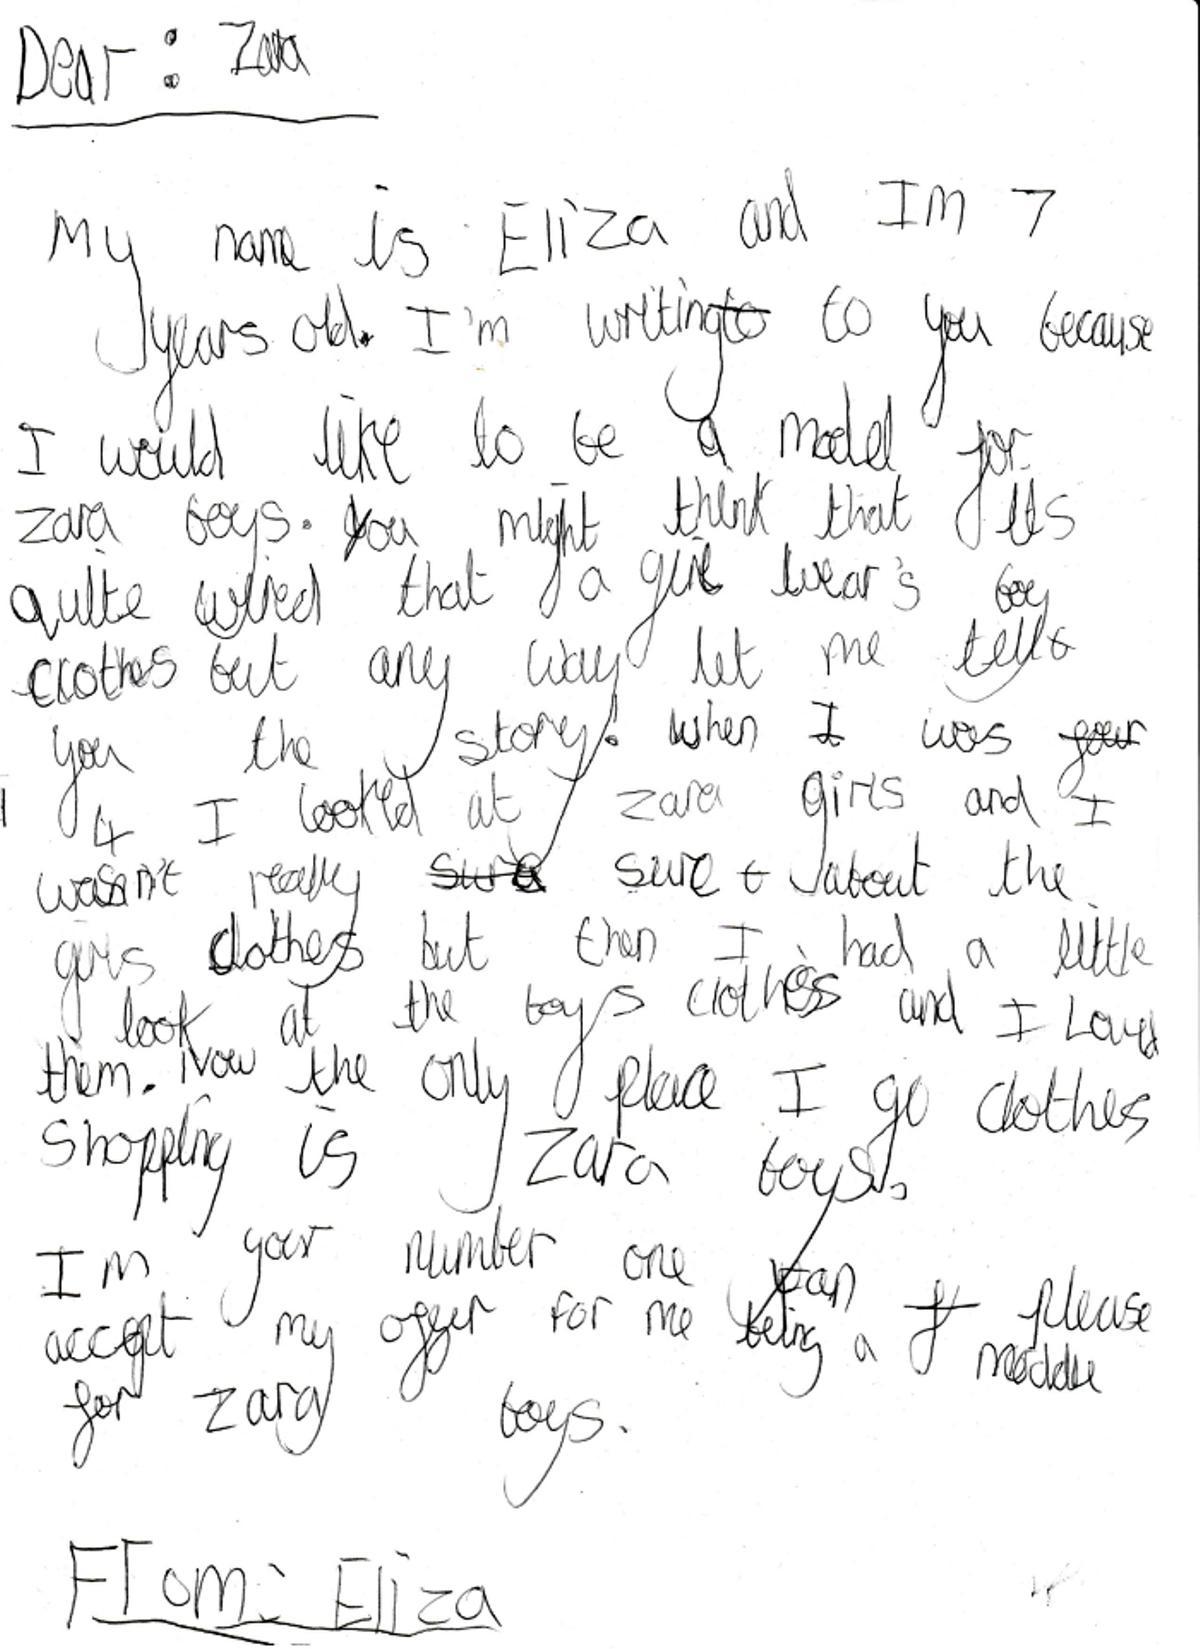 Dear: Zara
My name is Eliza and Im 7
years old. I'm writing to to you because
I would like to be a model for
zara boys. You might think that its
quite wired that a girl wear's boy
clothes but any way let me tell
you the story. when I was four
4 I looked at zara girls and I
wasn't really sure sure t about the
girls clothes but then I had a little
look at the boys clothes and I Loved
them. Now the only place I go clothes
shopping is Zara boys.
Im your number one fan please
accept my offer for me being a moddle
for zara boys.
From: Eliza